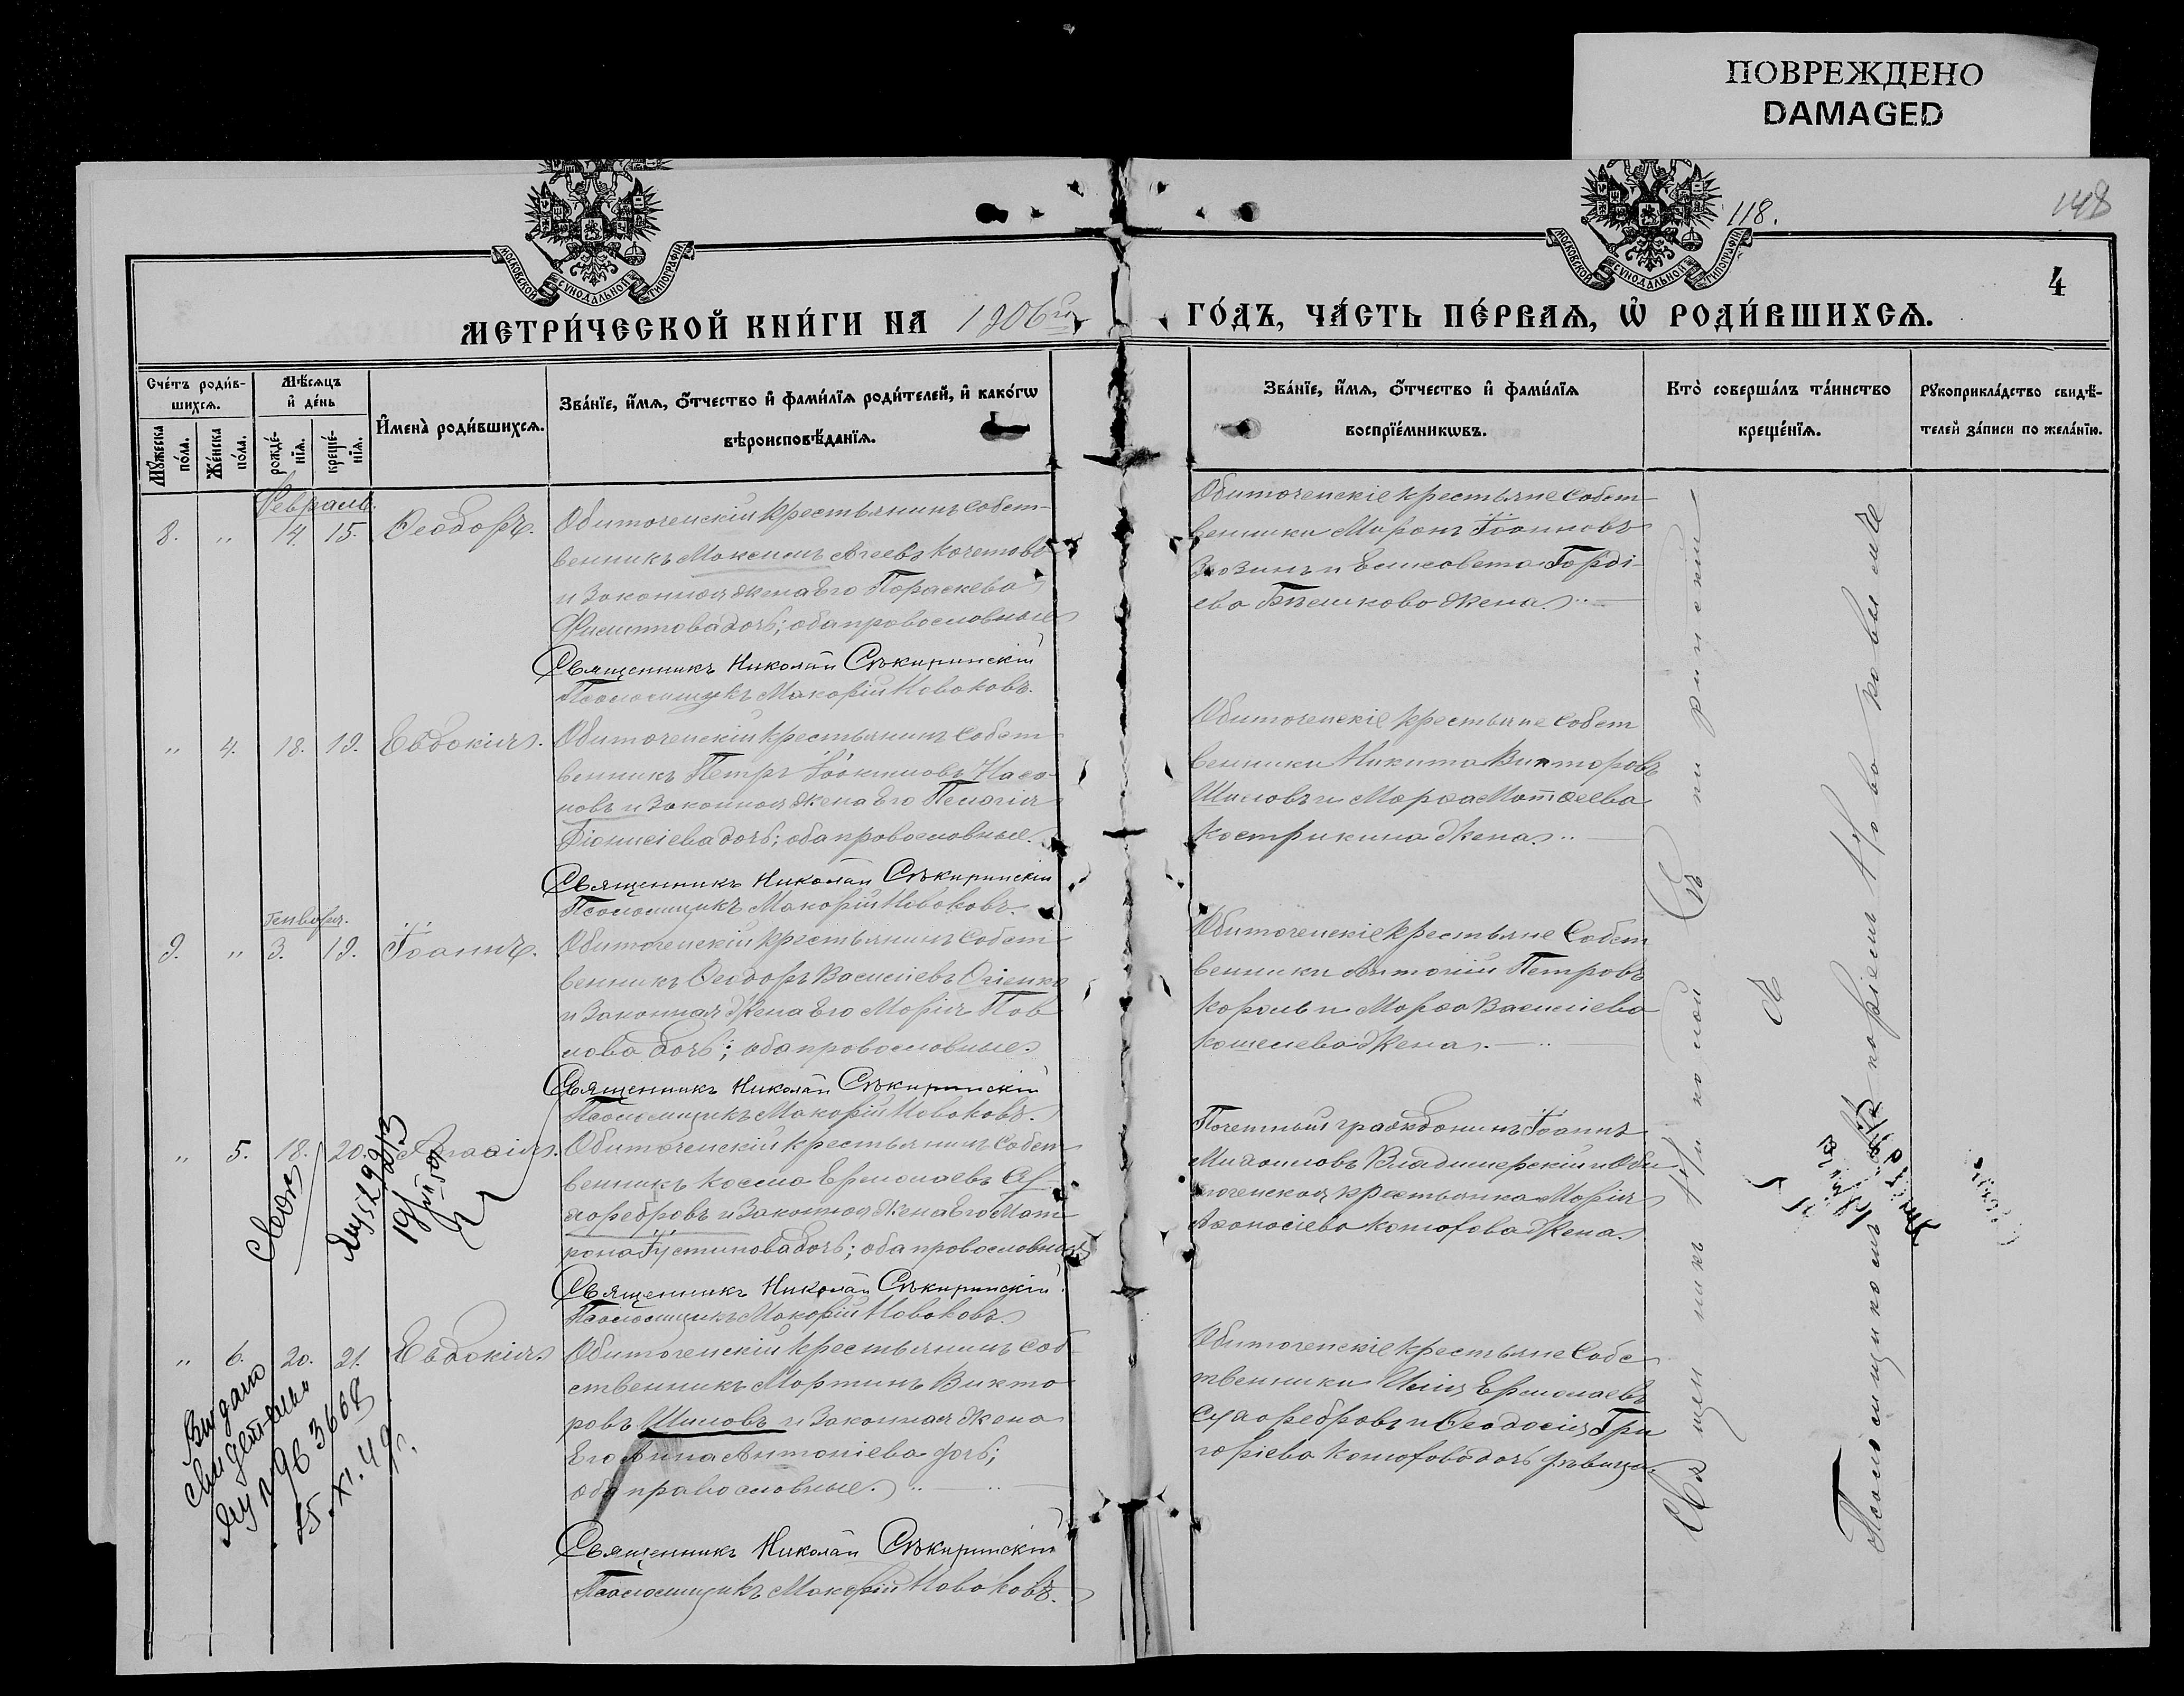 ПОВРЕЖДЕНО
DAMAGED
118.
148
4
МОСКОВСКОЙ СѴНОДАЛЬНОЙ ТИПОГРАФІИ
МОСКОВСКОЙ СѴНОДАЛЬНОЙ ТИПОГРАФІИ
МЕТРИ́ЧЕСКОЙ КНИ́ГИ НА 1906 го
ГО́ДЪ, ЧА́СТЬ ПЕ́РВАѦ, Ѡ҆ РОДИ́ВШИХСѦ.
Сче́тъ роди́в-
шихсѧ.
Мѣ́сѧцъ
и҆ де́нь
Мꙋ́жеска по́ла.
Же́нска по́ла.
рожде́-нїѧ.
креще́-нїѧ.
И҆мена̀ роди́вшихсѧ.
Зва́нїе, и҆́мѧ, ѻ҆́тчество и҆ фами́лїѧ роди́телей, и҆ како́гѡ
вѣроисповѣ́данїѧ.
Зва́нїе, и҆́мѧ, ѻ҆́тчество и҆ фами́лїѧ
воспрїе́мникѡвъ.
Кто̀ соверша́лъ та́инство
креще́нїѧ.
Рꙋкоприкла́дство свидѣ́-
телей за́писи по жела́нїю.
Февраль.
8. „ 14. 15. Ѳеодоръ.
Обиточенскій крестьянинъ собст-
венникъ Максимъ Агеевъ Кочетовъ
и законная жена его Параскева
Филиппова дочь; оба православные
Священникъ Николай Сѣкиринскій
Псаломщикъ Макарій Новаковъ.
Обиточенскіе крестьяне собст-
венники Миронъ Іоанновъ
и Елисавета Горді-
ева жена.
„ 4. 18. 19. Евдокія.
Обиточенскій крестьянинъ собст-
венникъ Петръ Насо-
новъ и законная жена его Пелагія
Діонисіева дочь; оба православные.
Священникъ Николай Сѣкиринскій
Псаломщикъ Макарій Новаковъ.
Обиточенскіе крестьяне собст
венники Никита Викторовъ
Шиловъ и Марѳа Матѳеева
Кострикина жена.
Генварь.
9. „ 3. 19. Іоаннъ.
Обиточенскій крестьянинъ собст
венникъ Ѳеодоръ Василіевъ Огіенко
и законная жена его Марія Пав
лова дочь; оба православные.
Священникъ Николай Сѣкиринскій
Псаломщикъ Макарій Новаковъ.
Обиточенскіе крестьяне собст
венники Антоній Петровъ
Король и Марѳа Василіева
Кошелева жена.
„ 5. 18. 20. Агаѳія.
Обиточенскій крестьянинъ собст
венникъ Косма Ермолаевъ Су-
хоребровъ и законная жена его Мат
рона Іустинова дочь; оба православные
Священникъ Николай Сѣкиринскій
Псаломщикъ Макарій Новаковъ.
Почетный гражданинъ Іоаннъ
Михаиловъ Владимерскій и Оби
точенская крестьянка Марія
Аѳанасіева Котова жена.
„ 6. 20. 21. Евдокія.
Обиточенскій крестьянинъ соб
ственникъ Мартинъ Викто
ровъ Шиловъ и законная жена
его Анна Антоніева дочь;
оба православные.
Священникъ Николай Сѣкиринскій
Псаломщикъ Макарій Новаковъ.
Обиточенскіе крестьяне собс
твенники Илія Ермолаевъ
Сухоребровъ и Ѳеодосія Гри
горіева дочь дѣвица.
Выдано
свидетельство
15. XI. 49 г.
Священникъ Николай Сѣкиринскій
съ
Псаломщикомъ Макаріемъ Новаковымъ